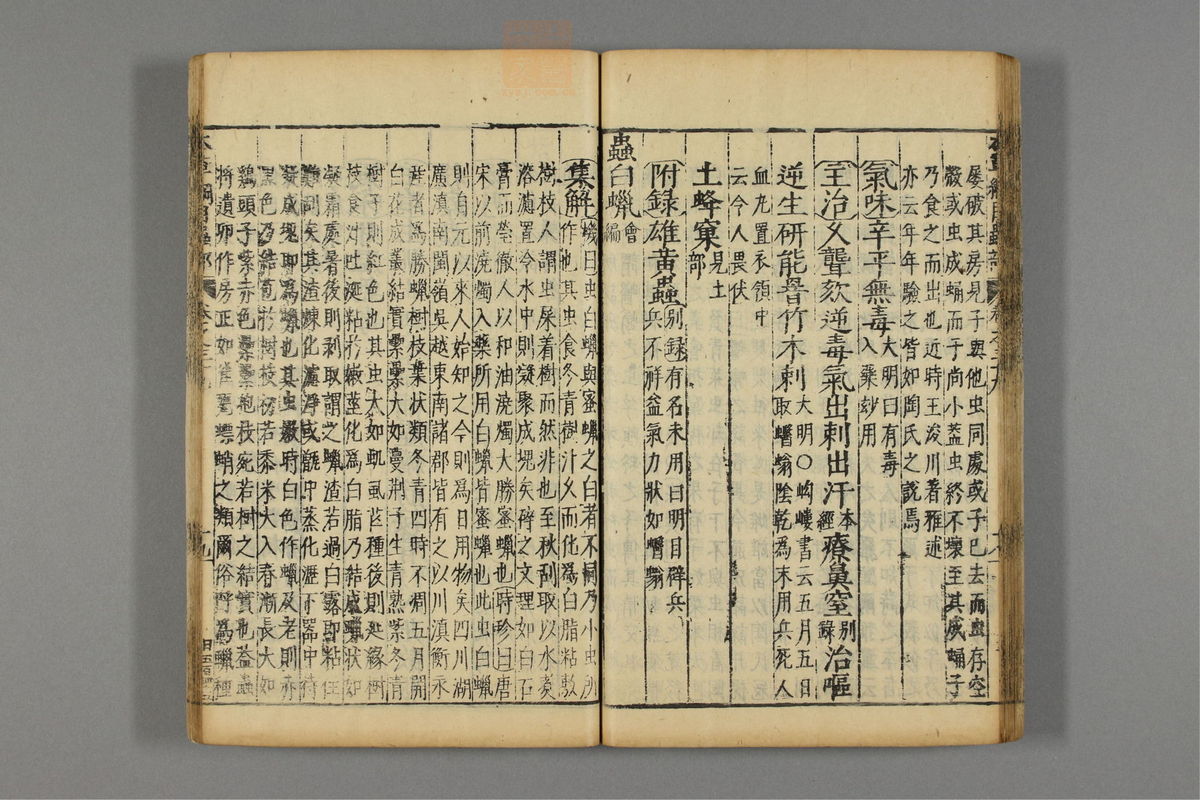 屡破其房見子與他虫同處或子已去而虫存空
殼或虫成蛹而子尚小葢虫終不壞至其成蛹子
乃食之而出也近時王浚川著雅述
亦云年年驗之皆如陶氏之說焉
氣味辛平無毒大明曰有毒入藥炒用
主治久聾欬逆毒氣出刺出汗本經療鼻窒別錄治嘔
逆生研能罯竹木刺大明〇岣嶁書云五月五日
取蠮螉陰乾為末用兵死人
血丸置衣領中
云今人畏伏
土蜂窠見土部
附録雄黃蟲别録有名未用曰明目辟兵
兵不祥益氣力狀如蠮螉
蟲白蠟會編
集解機曰虫白蠟與蜜蠟之白者不同乃小虫所
作也其虫食冬青樹汁久而化為白脂粘敷
樹枝人謂虫屎着樹而然非也至秋刮取以水煑
溶濾置冷水中則凝聚成塊矣碎之文理如白石
膏而瑩徹人以和油澆燭大勝蜜蠟也時珍曰唐
宋以前澆燭入藥所用白蠟皆蜜蠟也此虫白蠟
則自元以來人始知之今則爲日用物矣四川湖
廣滇南閩嶺吳越東南諸郡皆有之以川滇衡永
産者爲勝蠟樹枝葉狀類冬青四時不凋五月開
白花成叢結實纍纍大如蔓荆子生青熟紫冬青
樹子則紅色也其虫大如蟣虱芒種後則延緣樹
枝食汁吐涎粘於嫩莖化爲白脂乃結成蠟狀如
凝霜處暑後則剥取謂之蠟渣若過白露即粘住
難刮矣其渣煉化濾淨或甑中蒸化瀝下器中待
凝成塊即爲蠟也其虫嫩時白色作蠟及老則赤
黑色乃結苞於樹枝初若黍米大入春漸長大如
雞頭子紫赤色纍纍抱枝宛若樹之結實也葢蟲
將遺卵作房正如雀甕螵蛸之類爾俗呼爲蠟種